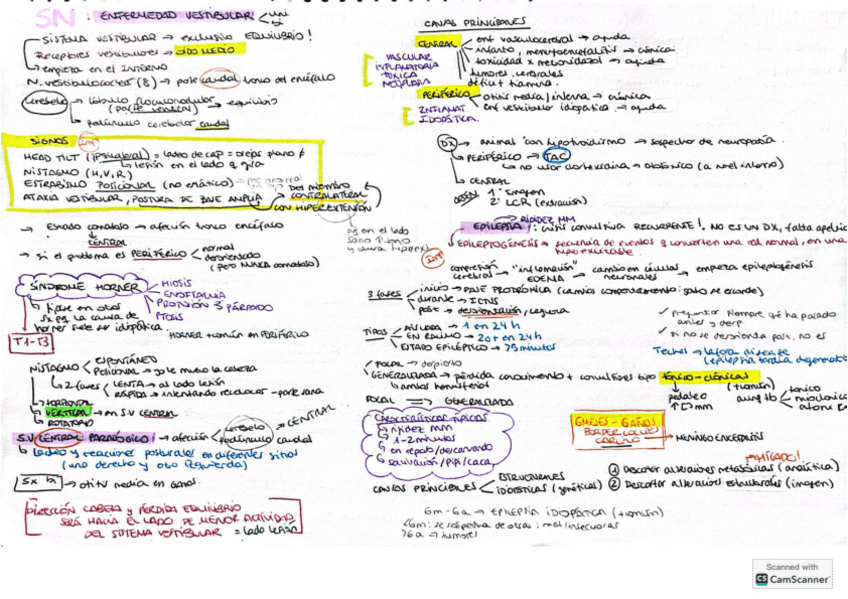 SN: ENFERMEDAD VESTIBULAR < uni bi
SISTEMA VESTIBULAR → exclusivo EQUILIBRIO!
Receptores vestibulares → OÍDO MEDIO
↳ empieza en el INTERNO
N. vestibulococlear (8) → parte caudal tronco del encéfalo
Cerebelo → lóbulo floculonodular → equilibrio
(parte ventral)
↳ pedúnculo cerebeloso caudal
SIGNOS
HEAD TILT (ipsilateral) = lado de cap = oreja plano ≠
↳ lesión en el lado q gira
NISTAGMO (H, V, R)
ESTRABISMO POSICIONAL (no errático)
ATAXIA VESTIBULAR, POSTURA DE BASE AMPLIA
Del miembro CONTRALATERAL
CON HIPEREXTENSIÓN
→ Estado comatoso → afección tronco encéfalo
CENTRAL
→ si el problema es PERIFÉRICO < normal
desorientado
(pero NUNCA comatoso)
SÍNDROME HORNER
MIOSIS
ENOFTALMIA
PROTUSIÓN 3 PÁRPADO
PTOSIS
horner suele ser idiopática.
HORNER + común en PERIFÉRICO
T1-T3
NISTAGMO
ESPONTÁNEO
Posicional → si le muevo la cabeza
↳ 2 fases < LENTA → al lado lesión
RÁPIDA → intentando recolocar - parte sana
↳ HORIZONTAL
↳ VERTICAL → en S.V CENTRAL
↳ ROTATORIO
S.V CENTRAL PARADÓGICO: → afección < cerebelo
pedúnculo caudal
CENTRAL
↳ ladeo y reacciones posturales en diferentes sitios
(uno derecho y otro izquierda)
→ otitis media en ambos.
DIRECCIÓN CABEZA y PÉRDIDA EQUILIBRIO
SERÁ HACIA EL LADO DE MENOR ACTIVIDAD
DEL SISTEMA VESTIBULAR = lado lesión
CAUSAS PRINCIPALES
CENTRAL
enf vasculocerebral → aguda
infarto, meningoencefalitis → crónica
toxicidad x metronidazol → aguda
tumores cerebrales
déficit tiamina.
VASCULAR
INFLAMATORIA
TÓXICA
NEOPLASIA
PERIFÉRICO
otitis media/interna → crónica
enf vestibular idiopática → aguda
INFLAMAT.
IDIOPÁTICA.
DX → animal con hipotiroidismo → sospecho de neuropatía.
↳ PERIFÉRICO → TAC
↳ no usar → ototóxico (a nivel interno)
↳ CENTRAL
ORDEN 1º Imagen
2º LCR (extracción)
EPILEPSIA: crisis convulsiva RECURRENTE!. NO ES UN DX, falta apellido
RIGIDEZ MM
EPILEPTOGÉNESIS → secuencia de eventos q convierten una red normal, en una
hiperexcitable.
compresión cerebral → "inflamación" EDEMA → cambio en células neuronales → empieza epileptogénesis
3 fases
inicio → FASE PRODRÓMICA
durante → ICTUS
post → desorientación, ceguera
TIPOS
AISLADA → 1 en 24 h
EN RACIMO → 2 o + en 24 h
ESTADO EPILÉPTICO → >5 minutos
✓ preguntar siempre q ha pasado antes y desp.
✓ si no se desorienta post, no es
FOCAL → despierto
GENERALIZADA → pérdida conocimiento + convulsiones tipo tónico-clónicas
↳ ambos hemisferios
(+ común)
pedaleo
FOCAL ⟹ GENERALIZADA
CARACTERÍSTICAS TÍPICAS
↳ rigidez MM
↳ 1-2 minutos
↳ en reposo/descansando
↳ salivación/pipí/caca.
6 MESES - 6 AÑOS
BORDER COLLIE
→ MENINGO ENCEFALITIS
CAUSAS PRINCIPALES < ESTRUCTURALES
IDIOPÁTICAS (genéticas)
① Descartar alteraciones metabólicas (analítica)
② Descartar alteraciones estructurales (imagen)
6m - 6a → EPILEPSIA IDIOPÁTICA (+ común)
<6m: se sospecha de otras: malf, infecciosas
>6a → tumores
Scanned with
CS CamScanner